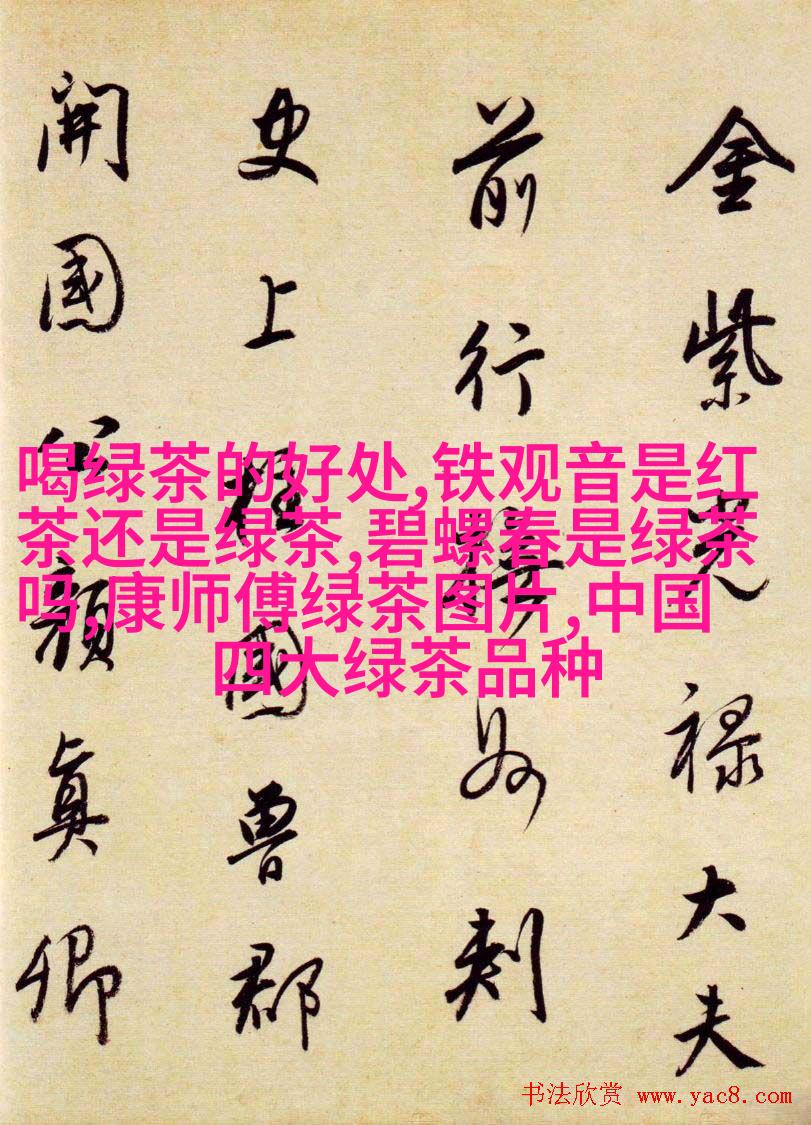 金紫光禄大夫
前行州刺
史上柱國魯郡
開國公顏真卿
喝绿茶的好处,铁观音是红
茶还是绿茶,碧螺春是绿茶
吗,康师傅绿茶图片,中国
四大绿茶品种
书法欣赏 www.yac8.com